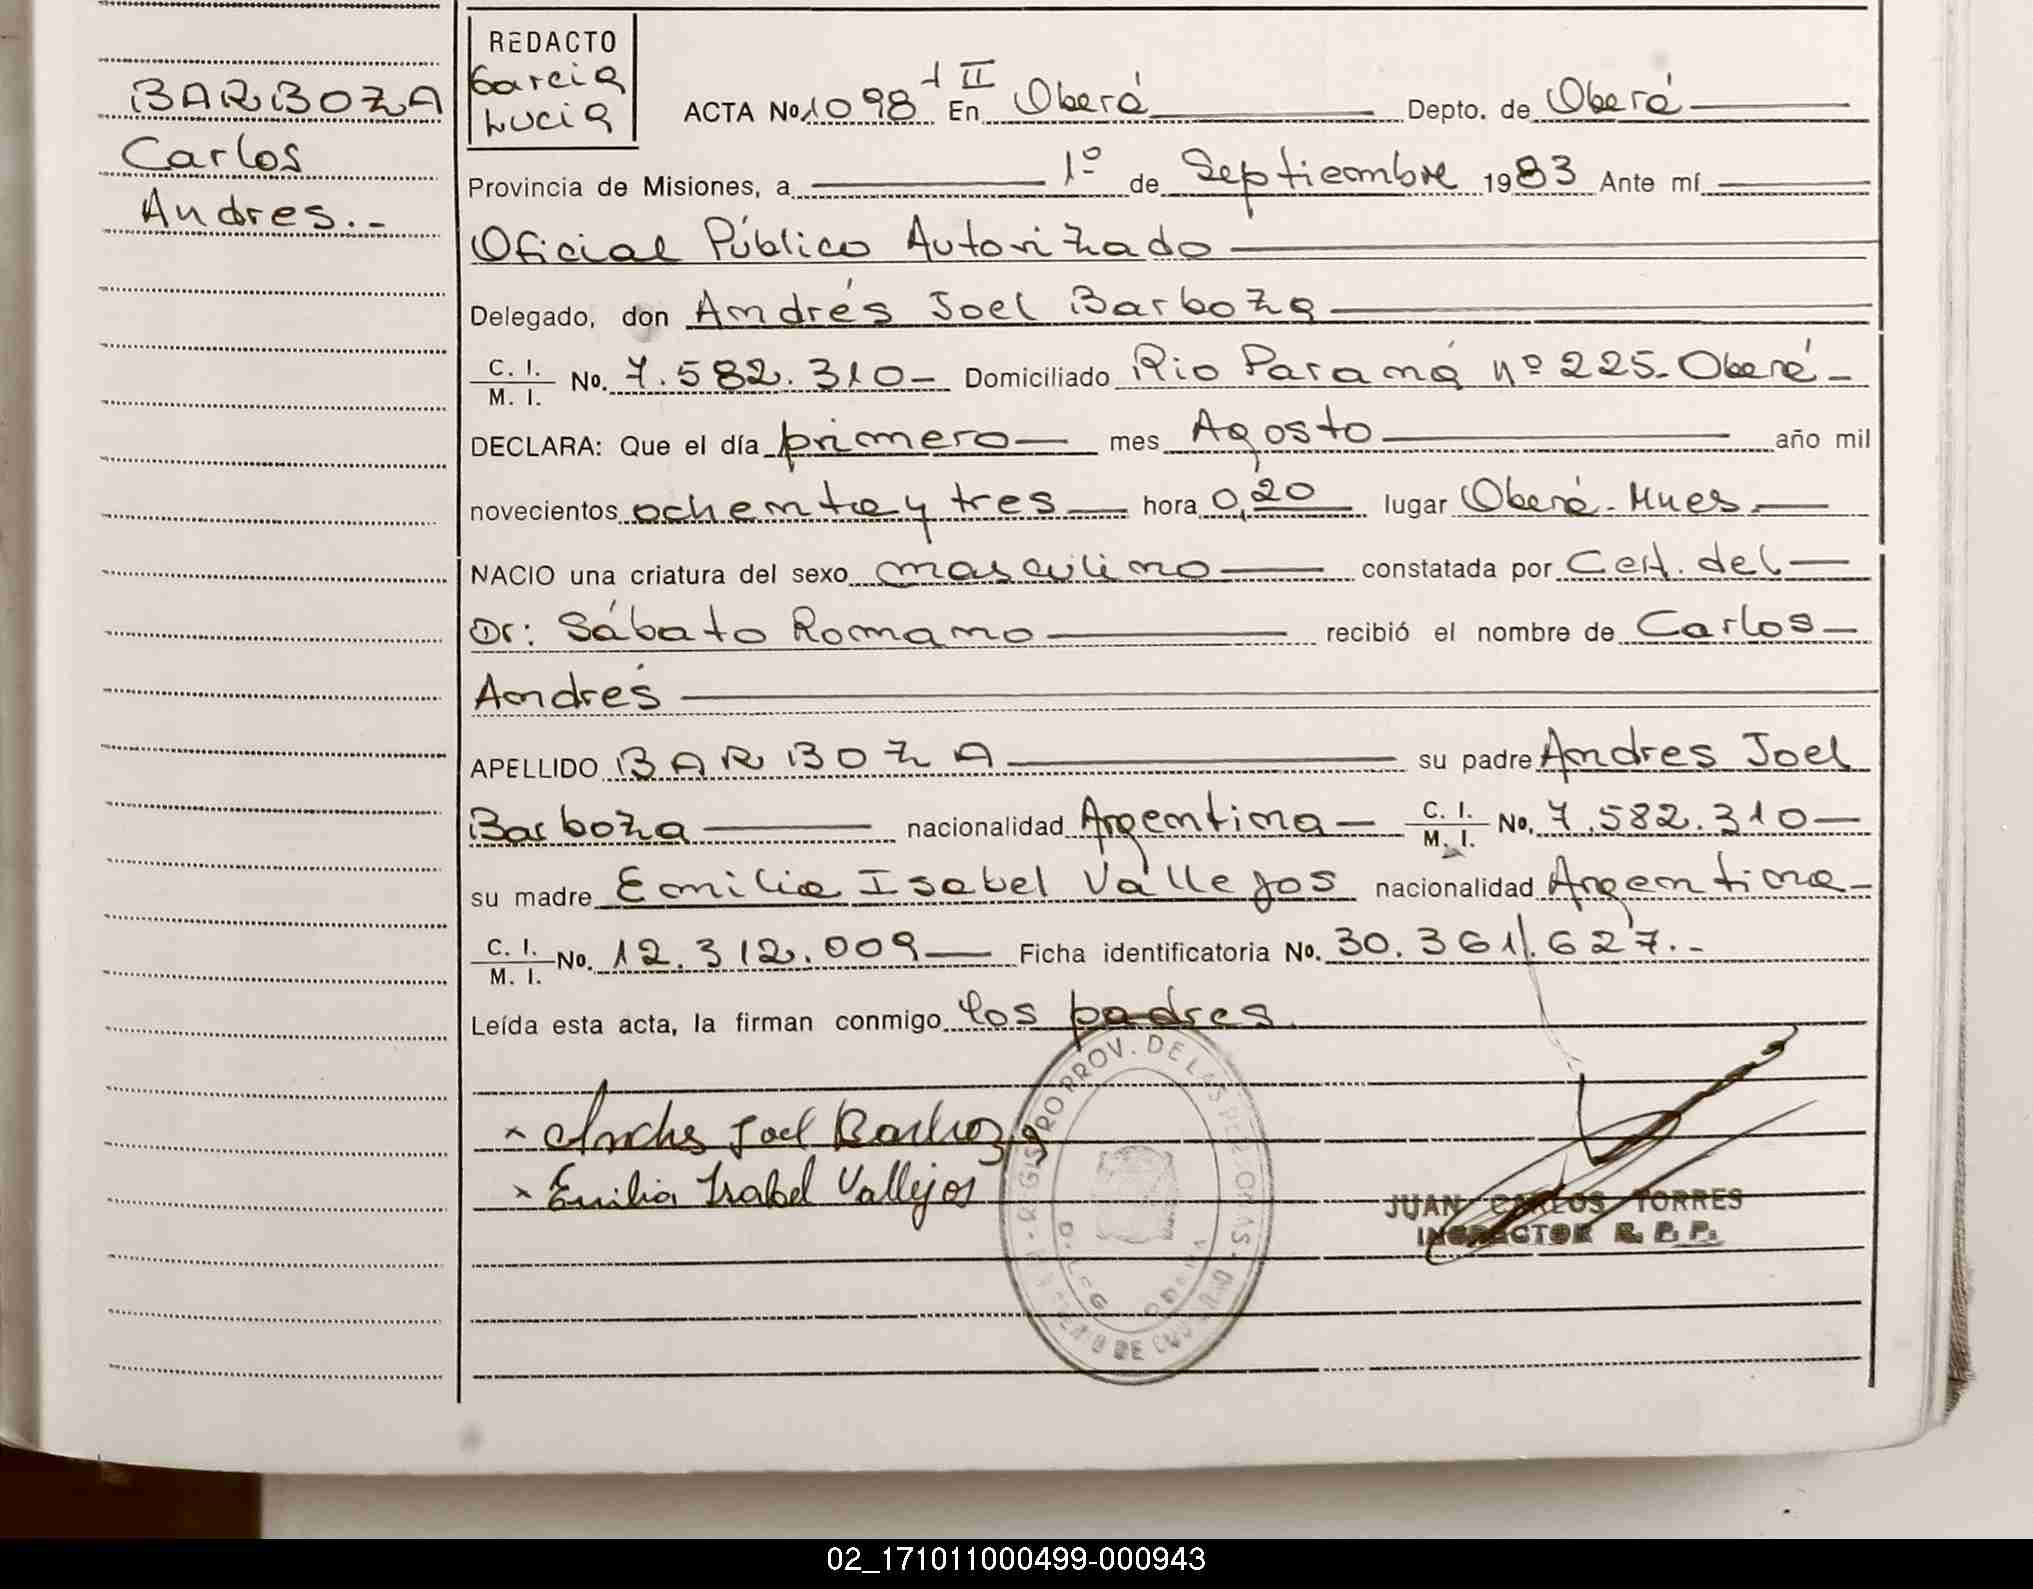 BARBOZA
Carlos
Andres.-
REDACTO
Garcia
Lucia
ACTA No. 1098 t II En Oberá Depto. de Oberá
Provincia de Misiones, a 1º de Septiembre 1983 Ante mí
Oficial Público Autorizado
Delegado, don Andrés Joel Barboza
C. I. / M. I. No. 7.582.310- Domiciliado Rio Paraná nº 225- Oberá-
DECLARA: Que el día primero mes Agosto año mil
novecientos ochenta y tres hora 0,20 lugar Oberá- Mnes.
NACIO una criatura del sexo masculino constatada por Cert. del
Dr: Sábato Romano recibió el nombre de Carlos
Andrés
APELLIDO BARBOZA su padre Andres Joel
Barboza nacionalidad Argentina C. I. / M. I. No. 7.582.310
su madre Emilia Isabel Vallejos nacionalidad Argentina
C. I. / M. I. No. 12.312.009 Ficha identificatoria No. 30.361.627.-
Leída esta acta, la firman conmigo los padres.
x Andres Joel Barboza
x Emilia Isabel Vallejos
REGISTRO PROV. DE LAS PERSONAS
JUAN CARLOS TORRES
INSPECTOR R. P. P.
02_171011000499-000943